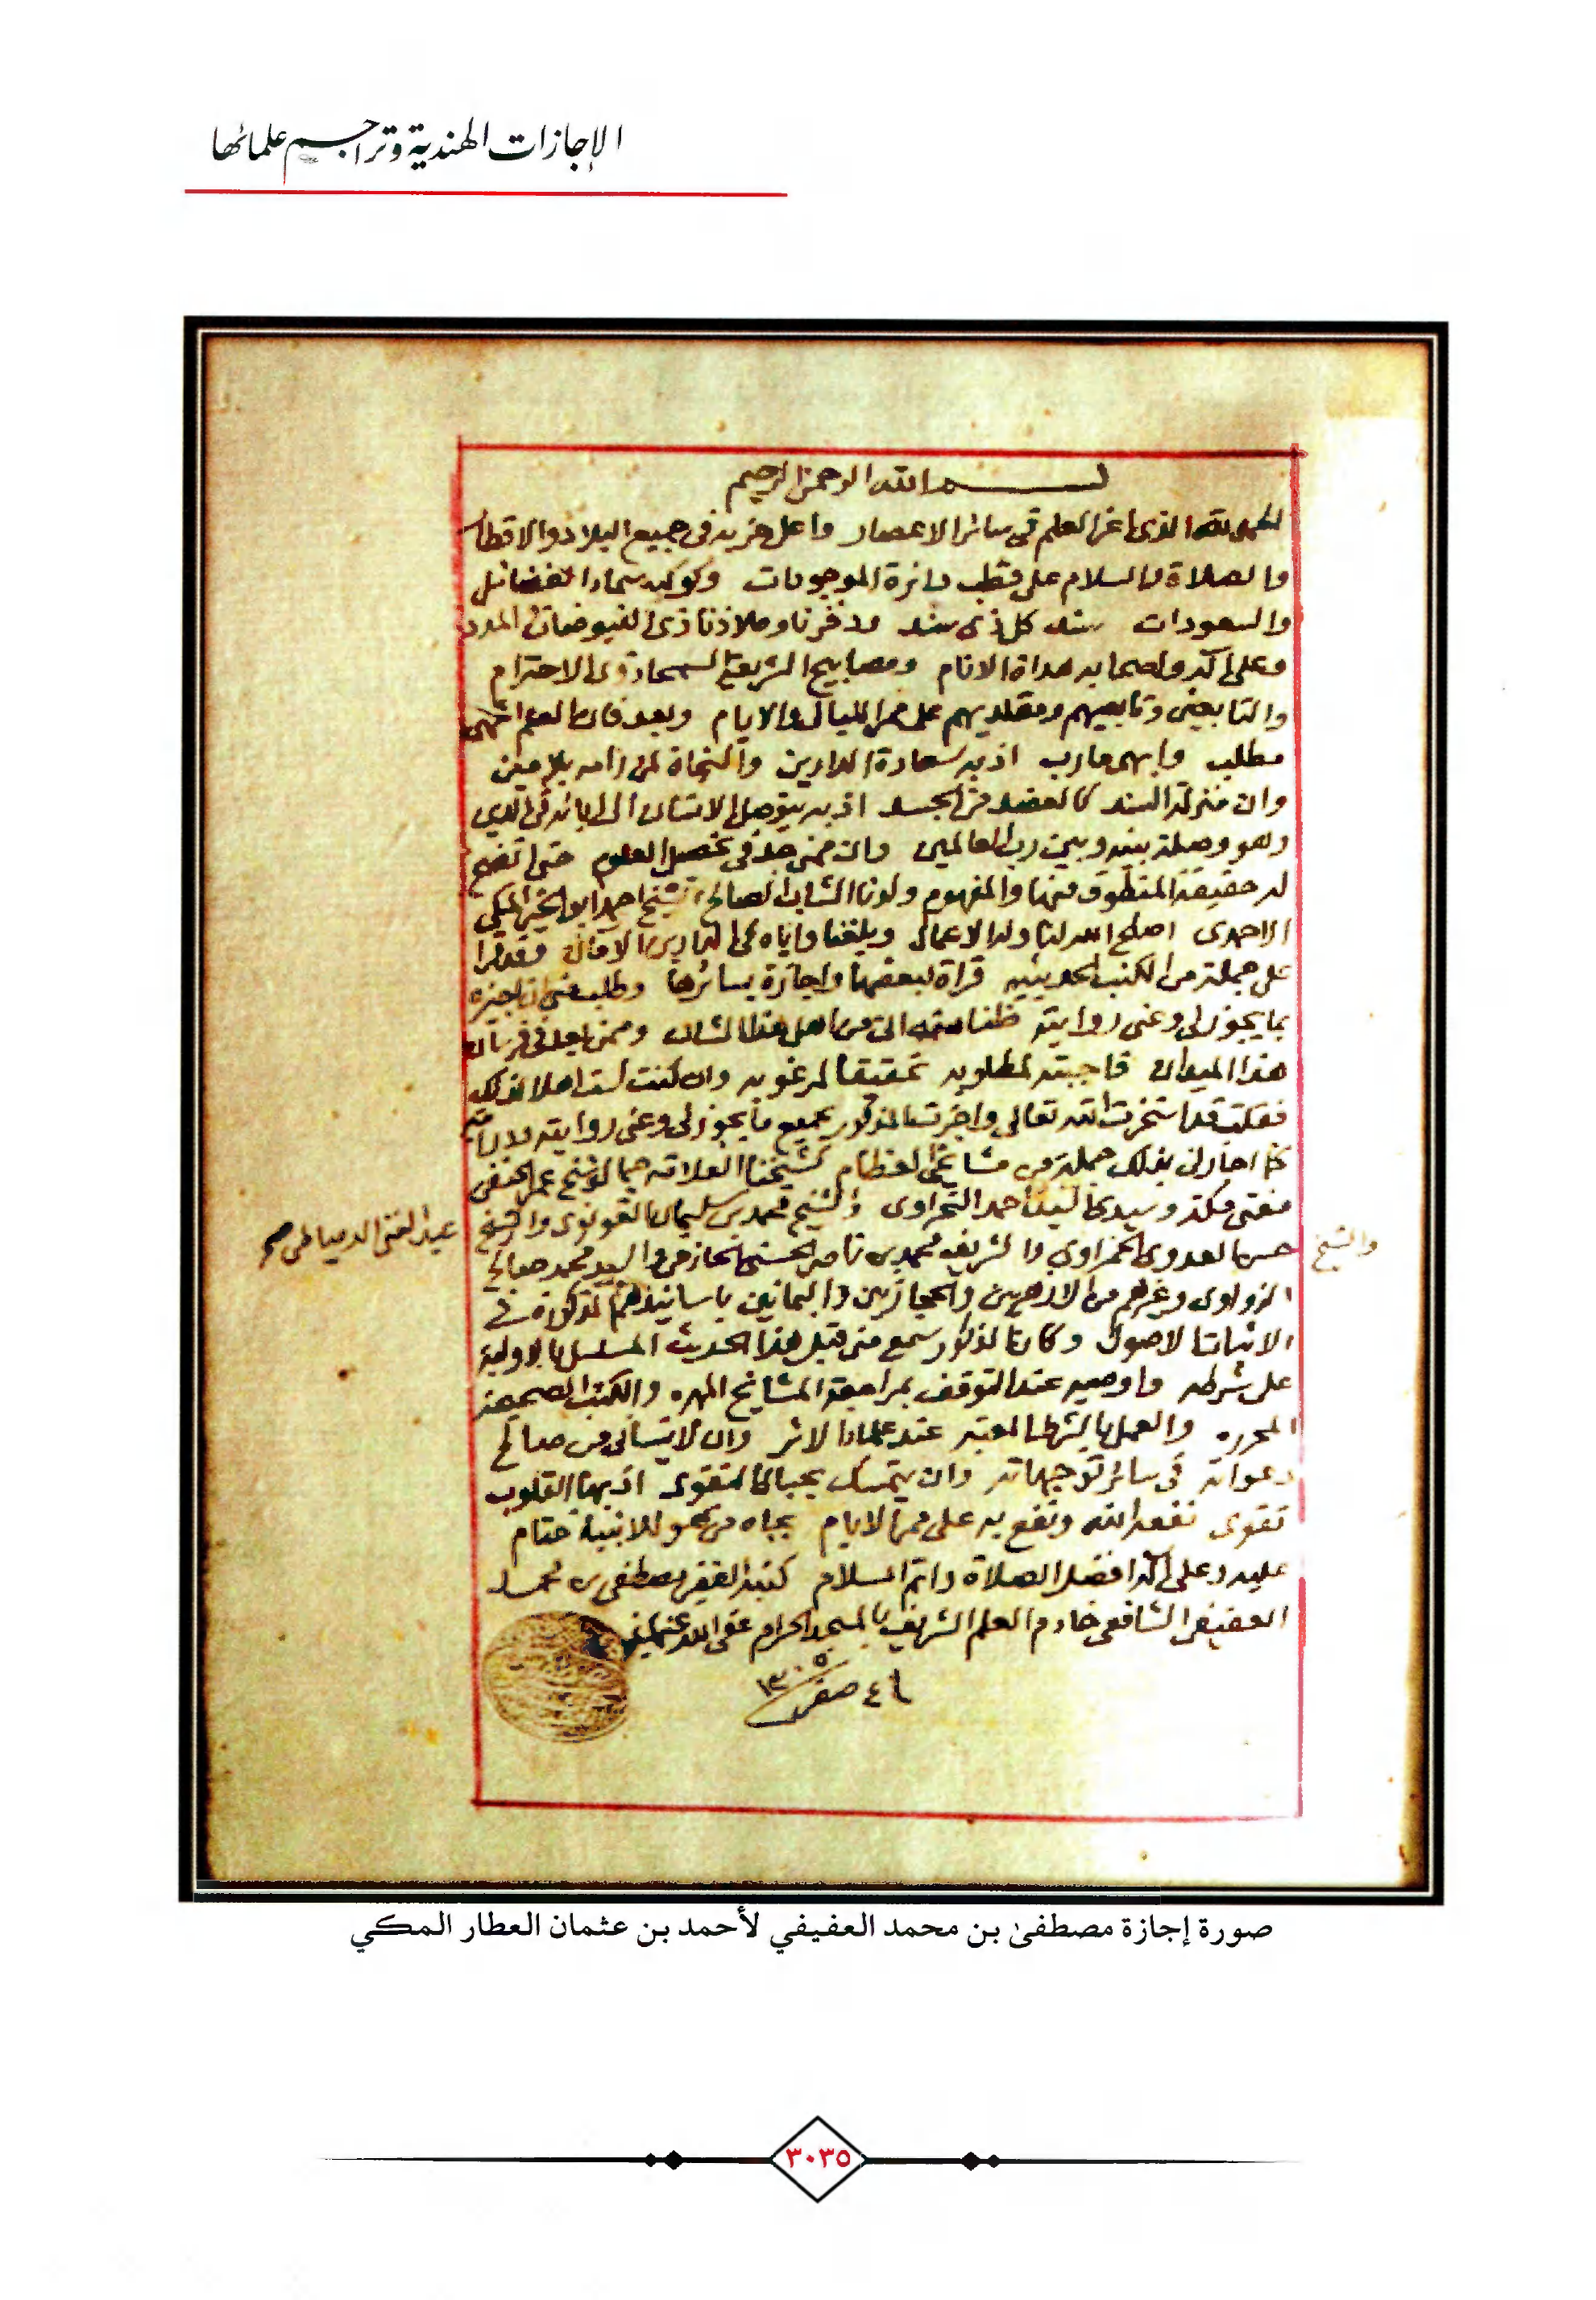 الإجازات الهندية وتراجم علمائها
بسم الله الرحمن الرحيم
الحمد لله الذي اعز العلم في سائر الاعصار واعلى حزبه في جميع البلاد والاقطار
والصلاة والسلام على قطب دائرة الموجودات وكوكب سماء الفضائل
والسعودات سند كل ذي سند وذخرنا وملاذنا ذي الفيوضات والمدد
وعلى آله واصحابه هداة الانام ومصابيح الشريعة السمحا ذوي الاحترام
والتابعين وتابعيهم ومقلديهم على ممر الليالي والايام وبعد فان العلم اشهى
مطلب وابهى مارب اذ به سعادة الدارين والنجاة لمن رامه بلا مين
وان منزلة السند كالعضد من الجسد اذ به يتوصل الانسان الى ابائه في الدين
وهو وصلة بينه وبين رب العالمين وان ممن جد في تحصيل العلوم حتى اتضح
له حقيقة المنطوق منها والمفهوم ولدنا الشاب الصالح الشيخ احمد ابو الخير المكي
الاحمدي اصلح الله لنا وله الاعمال وبلغنا واياه في الدارين الامال وقد قرا
على جملة من الكتب الحديثيه قراة لبعضها واجازة بسائرها وطلب مني ان اجيزه
بما يجوز لي وعني روايته ظنا منه اني من اهل هذا الشان وممن يعد في فرسان
هذا الميدان فاجبته لمطلوبه تحقيقا لمرغوبه وان كنت لست اهلا لذلك
فقلت قد استخرت الله تعالى واجزت المذكور بجميع ما يجوز لي وعني روايته
كما اجازني بذلك جملة من مشايخي العظام كشيخنا العلامة جمال شيخ عمر الحنفي
مفتي مكة وسيدي السيد احمد النحراوي والشيخ محمد بن سليمان القونوي والشيخ
عبد الغني الدمياطي صح
والشيخ
حسن العدوي الحمزاوي والشريف محمد بن ناصر الحسني الحازمي والسيد محمد صالح
الزواوي وغيرهم من الازهريين والحجازيين واليمانيين باسانيدهم المذكورة في
الاثبات الاصول وكان المذكور سمع مني قبل هذا الحديث المسلسل بالاولية
على شرطه واوصيه عند التوقف بمراجعة المشايخ المهره والكتب الصحيحة
المحرره والعمل بالشرط المعتبر عند علماء الاثر وان لا ينساني من صالح
دعواته في سائر توجهاته وان يتمسك بحبال التقوى اذ بها القلوب
تقوى نفعه الله ونفع به على ممر الايام بجاه من هو للانبياء ختام
عليه وعلى آله افضل الصلاة واتم السلام كتبه الفقير مصطفى بن محمد
العفيفي الشافعي خادم العلم الشريف بالمسجد الحرام عفى الله عنهما
صفر ١٣٠٥
صورة إجازة مصطفى بن محمد العفيفي لأحمد بن عثمان العطار المكي
٣٠٣٥